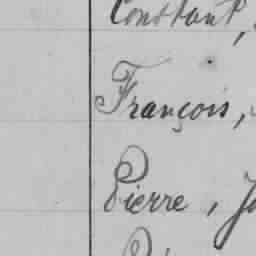 Constant,
François,
Pierre, J